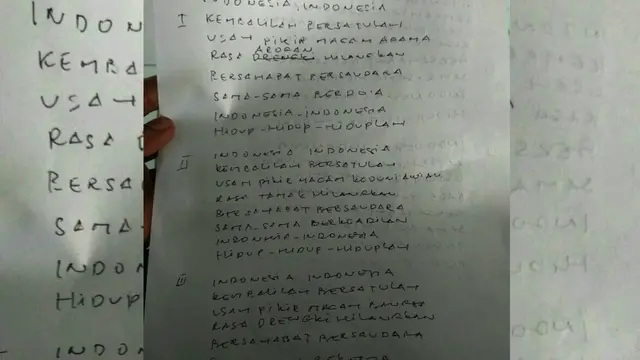 INDONESIA, INDONESIA
I KEMBALILAH BERSATULAH
USAH PIKIR MACAM AGAMA
AROGAN
RASA DRENGKI HILANGKAN
BERSAHABAT BERSAUDARA
SAMA-SAMA BERDO'A
INDONESIA-INDONESIA
HIDUP-HIDUP-HIDUPLAH
II INDONESIA INDONESIA
KEMBALILAH BERSATULAH
USAH PIKIR MACAM KODUNIAWIAN
RASA TAMAK HILANGKAN
BERSAHABAT BERSAUDARA
SAMA-SAMA BERKEADILAN
INDONESIA-INDONESIA
HIDUP-HIDUP-HIDUPLAH
III INDONESIA INDONESIA
KEMBALILAH BERSATULAH
USAH PIKIR MACAM
RASA DRENGKI HILANGKAN
BERSAHABAT BERSAUDARA